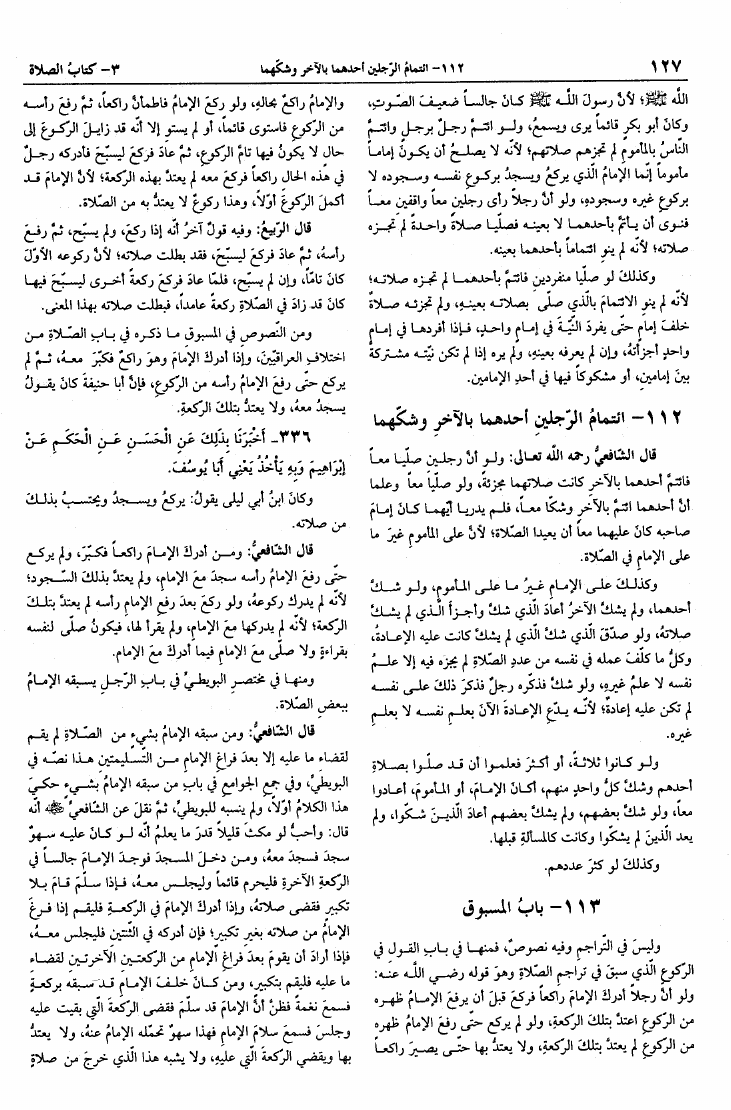 ١٢٧
١١٢- ائتمامُ الرّجلين أحدهما بالآخر وشكّهما
٣- كتابُ الصلاة
الله ﷺ؛ لأنَّ رسولَ اللـه ﷺ كـانَ جالسـاً ضعيـفَ الصّـوتِ،
وكانَ أبو بكرٍ قائماً يرى ويسمعُ، ولـو ائتـمَّ رجلٌ برجلٍ وائتـمَّ
النّاسُ بالمأمومِ لم تجزهم صلاتهم؛ لأنّه لا يصلـحُ أن يكـونَ إمامـاً
مأموماً إنّما الإمامُ الّذي يركعُ ويسجدُ بركـوعِ نفسـه وسـجوده لا
بركوعِ غيره وسجودهِ، ولو أنَّ رجلاً رأى رجلين معاً واقفين معـاً
فنـوى أن يـأتمَّ بأحدهمـا لا بعينـه فصلّيـا صـلاةً واحـدةً لم تجـزه
صلاته؛ لأنّه لم ينوِ ائتماماً بأحدهما بعينه.
وكذلكَ لو صلّيا منفردين فائتمَّ بأحدهمـا لم تجـزه صلاتـه؛
لأنّه لم ينوِ الائتمامَ بالّذي صلّى بصلاتـه بعينـهِ، ولم تجزئـه صـلاةٌ
خلفَ إمامٍ حتّى يفردَ النّيّـةَ في إمامٍ واحـدٍ، فـإذا أفردهـا في إمـامٍ
واحدٍ أجزأتهُ، وإن لم يعرفه بعينهِ، ولم يره إذا لم تكن نيّتـه مشـتركةً
بينَ إمامينِ، أو مشكوكاً فيها في أحدِ الإمامين.
١١٢- ائتمامُ الرّجلينِ أحدهما بالآخرِ وشكّهما
قال الشّافعيُّ رحمه الله تعالى: ولـو أنَّ رجلـين صلّيـا معـاً
فائتمَّ أحدهما بالآخرِ كانت صلاتهما مجزئةً، ولو صلّيـا معـاً وعلما
أنَّ أحدهما ائتمَّ بالآخرِ وشكّا معـاً، فلـم يدريـا أيّهمـا كـانَ إمـامَ
صاحبه كانَ عليهما معاً أن يعيدا الصّلاة؛ لأنَّ على المأمومِ غيرَ ما
على الإمامِ في الصّلاة.
وكذلـكَ علـى الإمـامِ غـيرُ مـا علـى المـأمومِ، ولـو شـكَّ
أحدهما، ولم يشكَّ الآخرُ أعادَ الّذي شكَّ وأجـزأ الّـذي لم يشـكَّ
صلاتهُ، ولو صدّقَ الّذي شكَّ الّذي لم يشكَّ كانت عليه الإعـادةُ،
وكلُّ ما كلّفَ عمله في نفسه من عددِ الصّلاةِ لم يجزه فيه إلا علـمُ
نفسه لا علمُ غيرهِ، ولو شكَّ فذكّره رجلٌ فذكرَ ذلكَ علـى نفسـه
لم تكن عليه إعادةٌ؛ لأنّـه يـدعُ الإعـادةَ الآنَ بعلـمِ نفسـه لا بعلـمِ
غيره.
ولـو كـانوا ثلاثـةً، أو أكـثرَ فعلمـوا أن قـد صلّـوا بصـلاةِ
أحدهم وشكَّ كلُّ واحدٍ منهم، أكـانَ الإمـامَ، أو المـأمومَ، أعـادوا
معاً، ولو شكَّ بعضهم، ولم يشكَّ بعضهم أعادَ الّذيـنَ شـكّوا، ولم
يعد الّذينَ لم يشكّوا وكانت كالمسألةِ قبلها.
وكذلكَ لو كثرَ عددهم.
١١٣- بابُ المسبوق
وليسَ في التّراجمِ وفيه نصوصٌ، فمنهـا في بـابِ القـولِ في
الرّكوعِ الّذي سبقَ في تراجمِ الصّلاةِ وهوَ قوله رضـي اللّـه عنـه:
ولو أنَّ رجلاً أدركَ الإمامَ راكعاً فركعَ قبلَ أن يرفعَ الإمامُ ظهـره
من الرّكوعِ اعتدَّ بتلكَ الرّكعةِ، ولو لم يركع حتّى رفعَ الإمامُ ظهره
من الرّكوعِ لم يعتدَّ بتلكَ الرّكعةِ، ولا يعتدُّ بها حتّـى يصـيرَ راكعـاً
والإمامُ راكعٌ بحالهِ، ولو ركعَ الإمامُ فاطمأنَّ راكعاً، ثـمَّ رفـعَ رأسـه
من الرّكوعِ فاستوى قائماً، أو لم يستوِ إلا أنّه قد زايـلَ الرّكـوعَ إلى
حالٍ لا يكونُ فيها تامَّ الرّكوعِ، ثمَّ عادَ فركعَ ليسبّحَ فأدركه رجـلٌ
في هذه الحالِ راكعاً فركعَ معه لم يعتدَّ بهذه الرّكعة؛ لأنَّ الإمامَ قـد
أكملَ الرّكوعَ أوّلاً، وهذا ركوعٌ لا يعتدُّ به من الصّلاة.
قال الرّبيعُ: وفيه قولٌ آخرُ أنّه إذا ركعَ، ولم يسبّح، ثمَّ رفـعَ
رأسهُ، ثمَّ عادَ فركعَ ليسبّحَ، فقد بطلت صلاته؛ لأنَّ ركوعه الأوّلَ
كانَ تامّاً، وإن لم يسبّح، فلمّا عادَ فركعَ ركعةً أخـرى ليسـبّحَ فيهـا
كانَ قد زادَ في الصّلاةِ ركعةً عامداً، فبطلت صلاته بهذا المعنى.
ومن النّصوصِ في المسبوقِ مـا ذكـره في بـابِ الصّـلاةِ مـن
اختلافِ العراقيّينَ، وإذا أدركَ الإمامَ وهوَ راكعٌ فكبّرَ معـهُ، ثـمَّ لم
يركع حتّى رفعَ الإمامُ رأسه من الرّكوعِ، فإنَّ أبا حنيفةَ كانَ يقـولُ
يسجدُ معهُ، ولا يعتدُّ بتلكَ الرّكعةِ.
٣٣٦- أَخْبَرَنَا بِذَلِكَ عَنِ الْحَسَـنِ عَـنِ الْحَكَـمِ عَـنْ
إبْرَاهِيمَ وَبِهِ يَأْخُذُ يَعْنِي أَبَا يُوسُفَ.
وكانَ ابنُ أبي ليلى يقولُ: يركعُ ويسـجدُ ويحتسـبُ بذلـكَ
من صلاته.
قال الشّافعيُّ: ومـن أدركَ الإمـامَ راكعـاً فكـبّرَ، ولم يركـع
حتّى رفعَ الإمامُ رأسه سجدَ مـعَ الإمامِ، ولم يعتدَّ بذلكَ السّـجود؛
لأنّه لم يدرك ركوعهُ، ولو ركعَ بعدَ رفعِ الإمامِ رأسه لم يعتدَّ بتلـكَ
الرّكعة؛ لأنّه لم يدركها معَ الإمامِ، ولم يقرأ لها، فيكونُ صلّى لنفسه
بقراءةٍ ولا صلّى مـعَ الإمامِ فيما أدركَ معَ الإمام.
ومنهـا في مختصـرِ البويطـيِّ في بـابِ الرّجـلِ يسـبقه الإمـامُ
ببعضِ الصّلاة.
قال الشّافعيُّ: ومن سبقه الإمامُ بشيءٍ من الصّـلاةِ لم يقـم
لقضاءِ ما عليه إلا بعدَ فراغِ الإمامِ مـن التّسـليمتينِ هـذا نصّـه في
البويطيِّ، وفي جمعِ الجوامعِ في بابِ من سبقه الإمامُ بشـيءٍ حكـيَ
هـذا الكـلامُ أوّلاً، ولم ينسبه للبويطيِّ، ثمَّ نقلَ عن الشّافعيِّ ﷺ أنّه
قال: وأحبُّ لو مكثَ قليلاً قدرَ ما يعلمُ أنّه لـو كـانَ عليـه سـهوٌ
سجدَ فسجدَ معهُ، ومـن دخـلَ المسـجدَ فوجـدَ الإمـامَ جالسـاً في
الرّكعةِ الآخرةِ فليحرم قائماً وليجلس معـهُ، فـإذا سـلّمَ قـامَ بـلا
تكبيرٍ فقضى صلاتهُ، وإذا أدركَ الإمامَ في الرّكعـةِ فليقـم إذا فـرغَ
الإمامُ من صلاته بغيرِ تكبيرٍ؛ فإن أدركه في الثّنتينِ فليجلس معـهُ،
فإذا أرادَ أن يقومَ بعدَ فراغِ الإمامِ من الرّكعتـينِ الآخرتـينِ لقضـاء
ما عليه فليقم بتكبيرٍ، ومن كـانَ خلـفَ الإمـامِ قـد سـبقه بركعـةٍ
فسمعَ نغمةً فظنَّ أنَّ الإمامَ قد سلّمَ فقضى الرّكعةَ الّتي بقيت عليه
وجلسَ فسمعَ سلامَ الإمامِ فهذا سهوٌ تحمّله الإمامُ عنهُ، ولا يعتدُّ
بها ويقضي الرّكعةَ الّتي عليهِ، ولا يشبه هذا الّذي خرجَ من صلاةِ